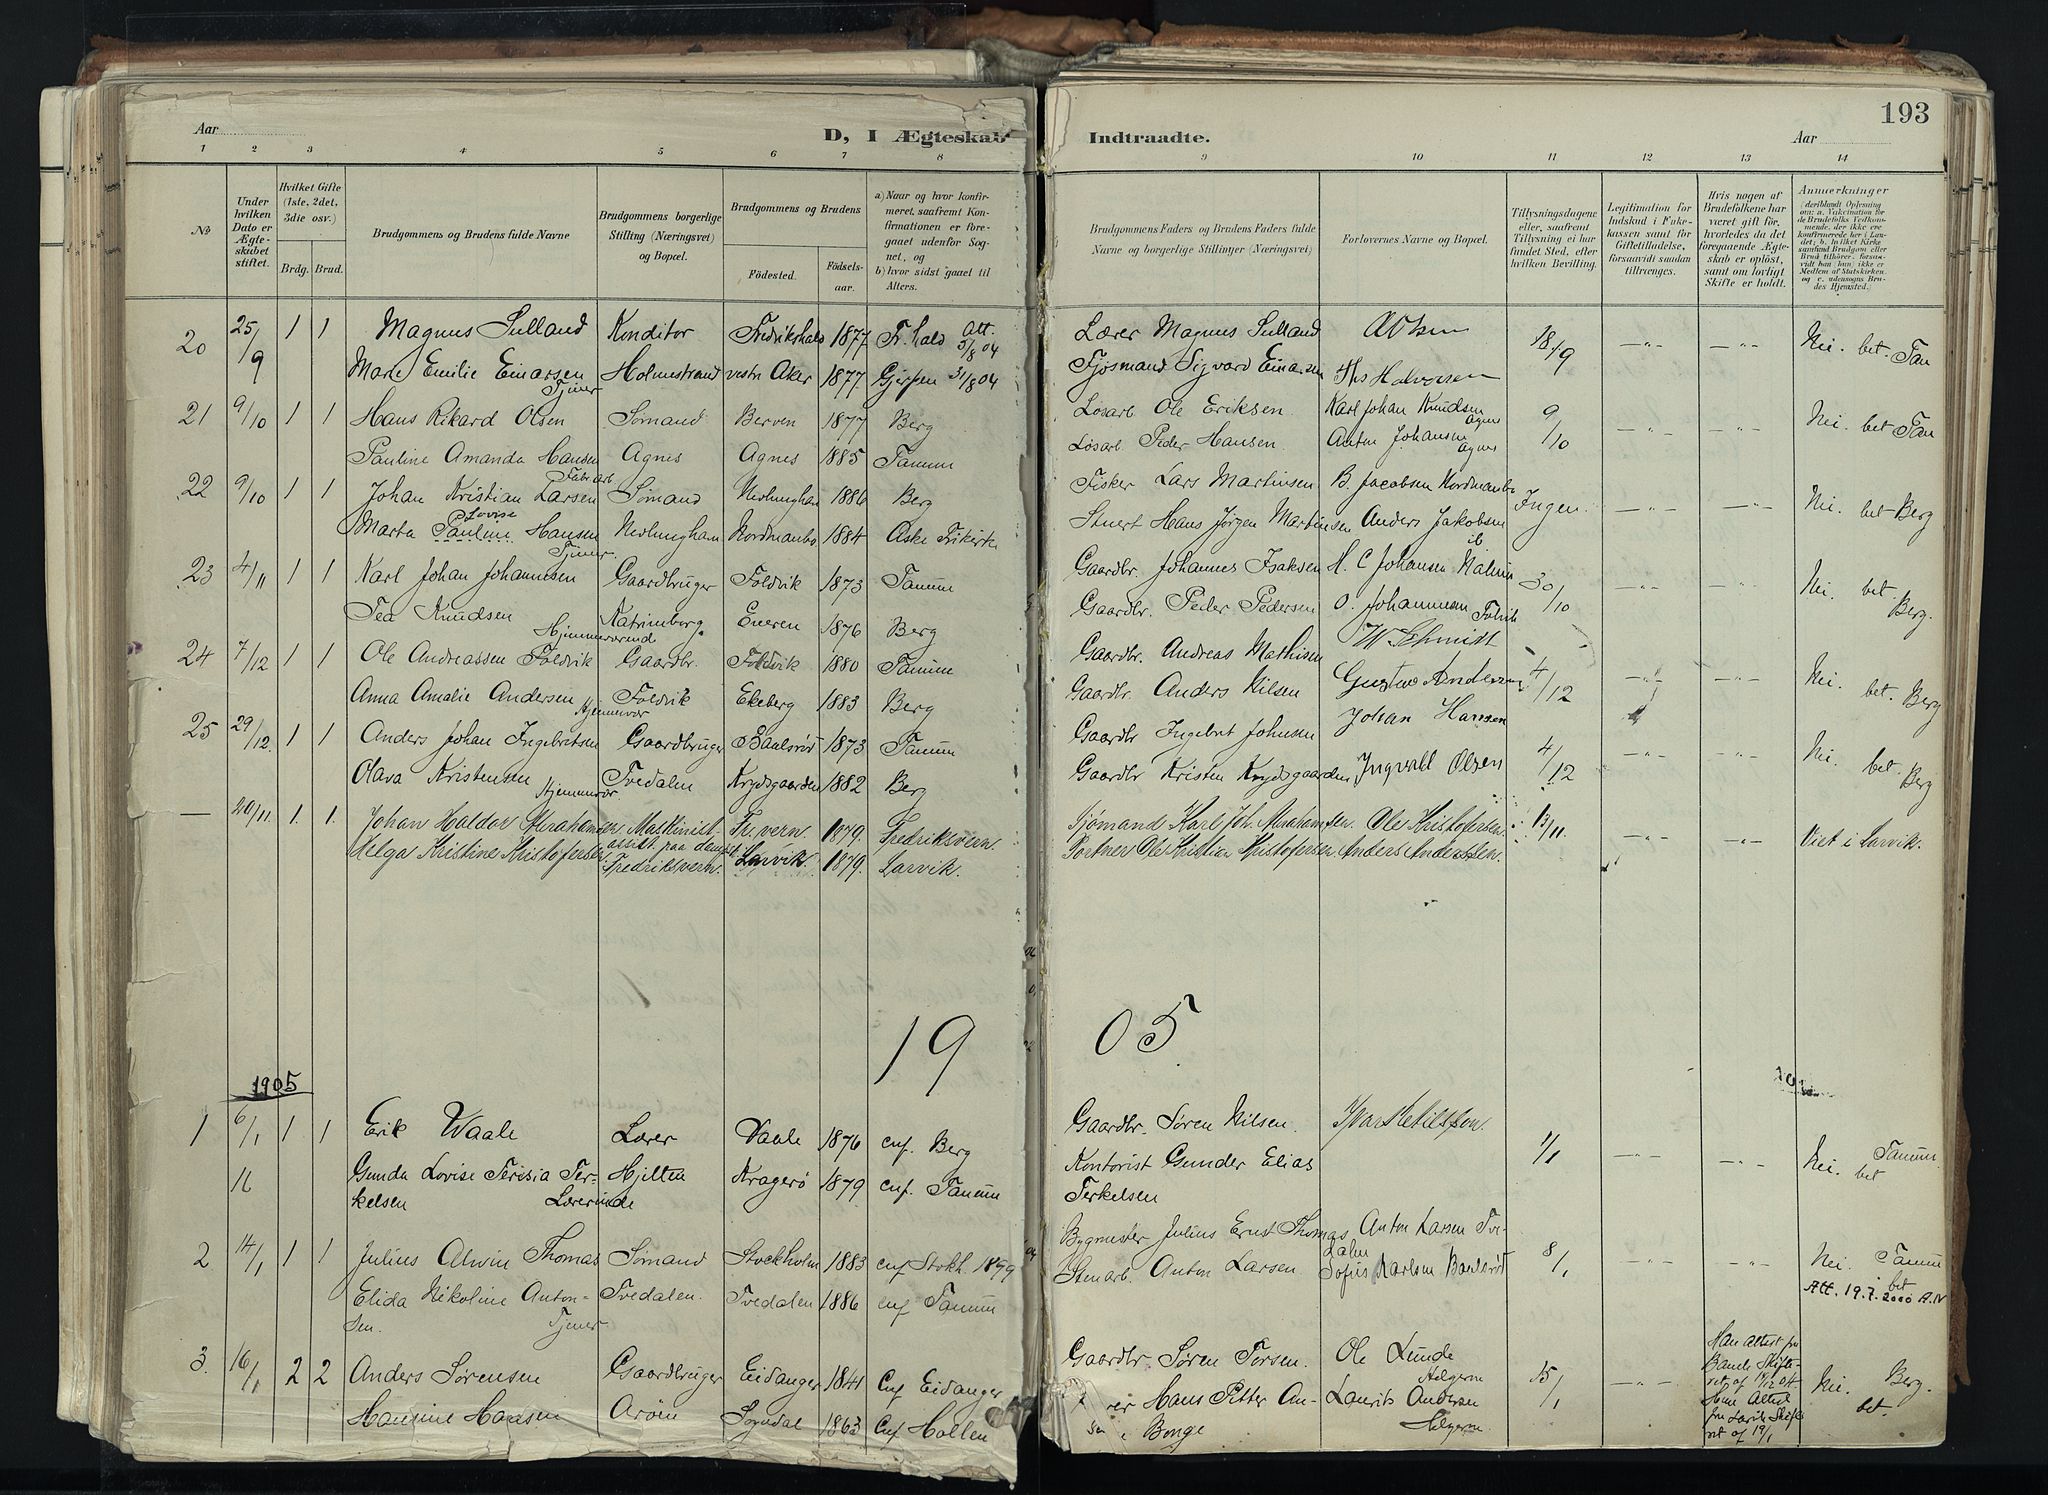 193
Aar
D, I Ægteskab
Indtraadte.
Aar
1 2 3 4 5 6 7 8 9 10 11 12 13 14
No
Under hvilken Dato er Ægteskabet stiftet.
Hvilket Gifte (1ste, 2det, 3die osv.)
Brdg. Brud.
Brudgommens og Brudens fulde Navne
Brudgommens borgerlige Stilling (Næringsvei) og Bopæl.
Brudgommens og Brudens
Fødested. Fødselsaar.
a) Naar og hvor konfirmeret, saafremt Konfirmationen er foregaaet udenfor Sognet, og
b) hvor sidst gaaet til Alters.
Brudgommens Faders og Brudens Faders fulde Navne og borgerlige Stillinger (Næringsvei)
Forlovernes Navne og Bopæl.
Tillysningsdagene eller, saafremt Tillysning ei har fundet Sted, efter hvilken Bevilling.
Legitimation for Indskud i Enkekassen samt for Giftetilladelse, forsaavidt saadan tiltrænges.
Hvis nogen af Brudefolkene har været gift før, hvorledes da det foregaaende Ægteskab er opløst, samt om lovligt Skifte er holdt.
Anmærkninger
20 25/9 1 1 Magnus Sulland Konditor Fredrikshald 1877 Fr. hald Att. 5/8 04 Lærer Magnus Sulland 18/9 Nei. bet. Tan
Marie Emilie Einarsen Tjener Holmestrand vestre Aker 1877 Gjerpen 31/8 04 Fjøsmand Sigvard Einarsen Ths Halvorsen
21 9/10 1 1 Hans Rikard Olsen Sømand Berven 1877 Berg Løsarb. Ole Eriksen Karl Johan Knudsen Agnes 9/10 Nei. bet Tan
Pauline Amanda Hansen Fabr.arb Agnes Agnes 1885 Tanum Løsarb. Peder Hansen. Anton Johansen Agnes
22 9/10 1 1 Johan Kristian Larsen Sømand Nevlunghavn 1886 Berg Fisker Lars Martinsen B. Jacobsen Nordmanbo Ingen. Nei. bet Berg
Marta Lovise Pauline Hansen Tjener Nevlunghavn Nordmanbo 1884 Aske Frikirke Stuert Hans Jørgen Martinsen Anders Jakobsen ib
23 4/11 1 1 Karl Johan Johannesen Gaardbruger Foldvik 1873 Tanum Gaardbr. Johannes Isaksen H. C Johansen 30/10 Nei. bet. Berg.
Tea Knudsen Hjemmeværend Katrineborg Eneren 1876 Berg Gaardbr. Peder Pedersen O. Johannesen Folvik
24 7/12 1 1 Ole Andreassen Foldvik Gaardbr. Foldvik 1880 Tanum Gaardbr. Andreas Mathisen W Schmidt 4/12 Nei. bet. Berg
Anna Amalie Andersen Hjemmevær Foldvik Ekeberg 1883 Berg Gaardbr. Anders Nilsen Gustav Andersen
25 29/12. 1 1 Anders Johan Ingebretsen Gaardbruger Baalsrød 1873 Tanum Gaardbr Ingebret Johnsen Johan Hansen 4/12 Nei. bet. Berg
Olava Kristensen Hjemmevær. Tvedalen Krydsgaarden 1882 Berg Gaardbr Kristen Krydsgaarden Ingvald Olsen
— 20/11. 1. 1. Johan Haldor Abrahamsen, Maskinist- Fr.vern. 1879. Fredriksvern. Sjømand Karl Joh. Abrahamsen. Ole Kristofersen. 13/11. Viet i Larvik.
Helga Kristine Kristofersen. Fredriksvern. Larvik. 1879. Larvik. Portner Ole Kristian Kristofersen. Anders Anderssen.
19 05
1905
1 6/1 1 1 Erik Waale Lærer Vaale 1876 cnf. Berg Gaardbr. Søren Nilsen. 1/1 Nei. Tanum. bet
Gunda Lovise Terisia Ter- Hjelten Kragerø 1879 cnf. Tanum Kontorist Gunder Elias
kelsen Lærerinde Terkelsen
2 14/1 1 1 Julius Alwin Thomas Sømand Stockholm 1883 cnf Stokh. 1899 Bygmester Julius Ernst Thomas Anton Larsen Tve- 8/1 Nei. Tanum bet
dalen
Elida Nikoline Anton- Tvedalen. Tvedalen 1886 cnf Tanum Stenarb. Anton Larsen Sofus Karlsen Baalsrød Att. 19.7.2000 A.N
sen. Tjener
3. 16/1 2 2 Anders Sørensen Gaardbruger Eidanger 1841 Cnf Eidanger Gaardbr. Søren Torsen. Ole Lunde Helgeroa 15/1 Han Attest fra Skifteret af 14/12 04. Nei. Berg. bet.
Hansine Hansen Arøen Sogndal 1863 Cnf Hollen Hans Petter An- Laurits Andersen Helgeroa Hun Attest fra Larvik Skifteret af 19/1
Borge